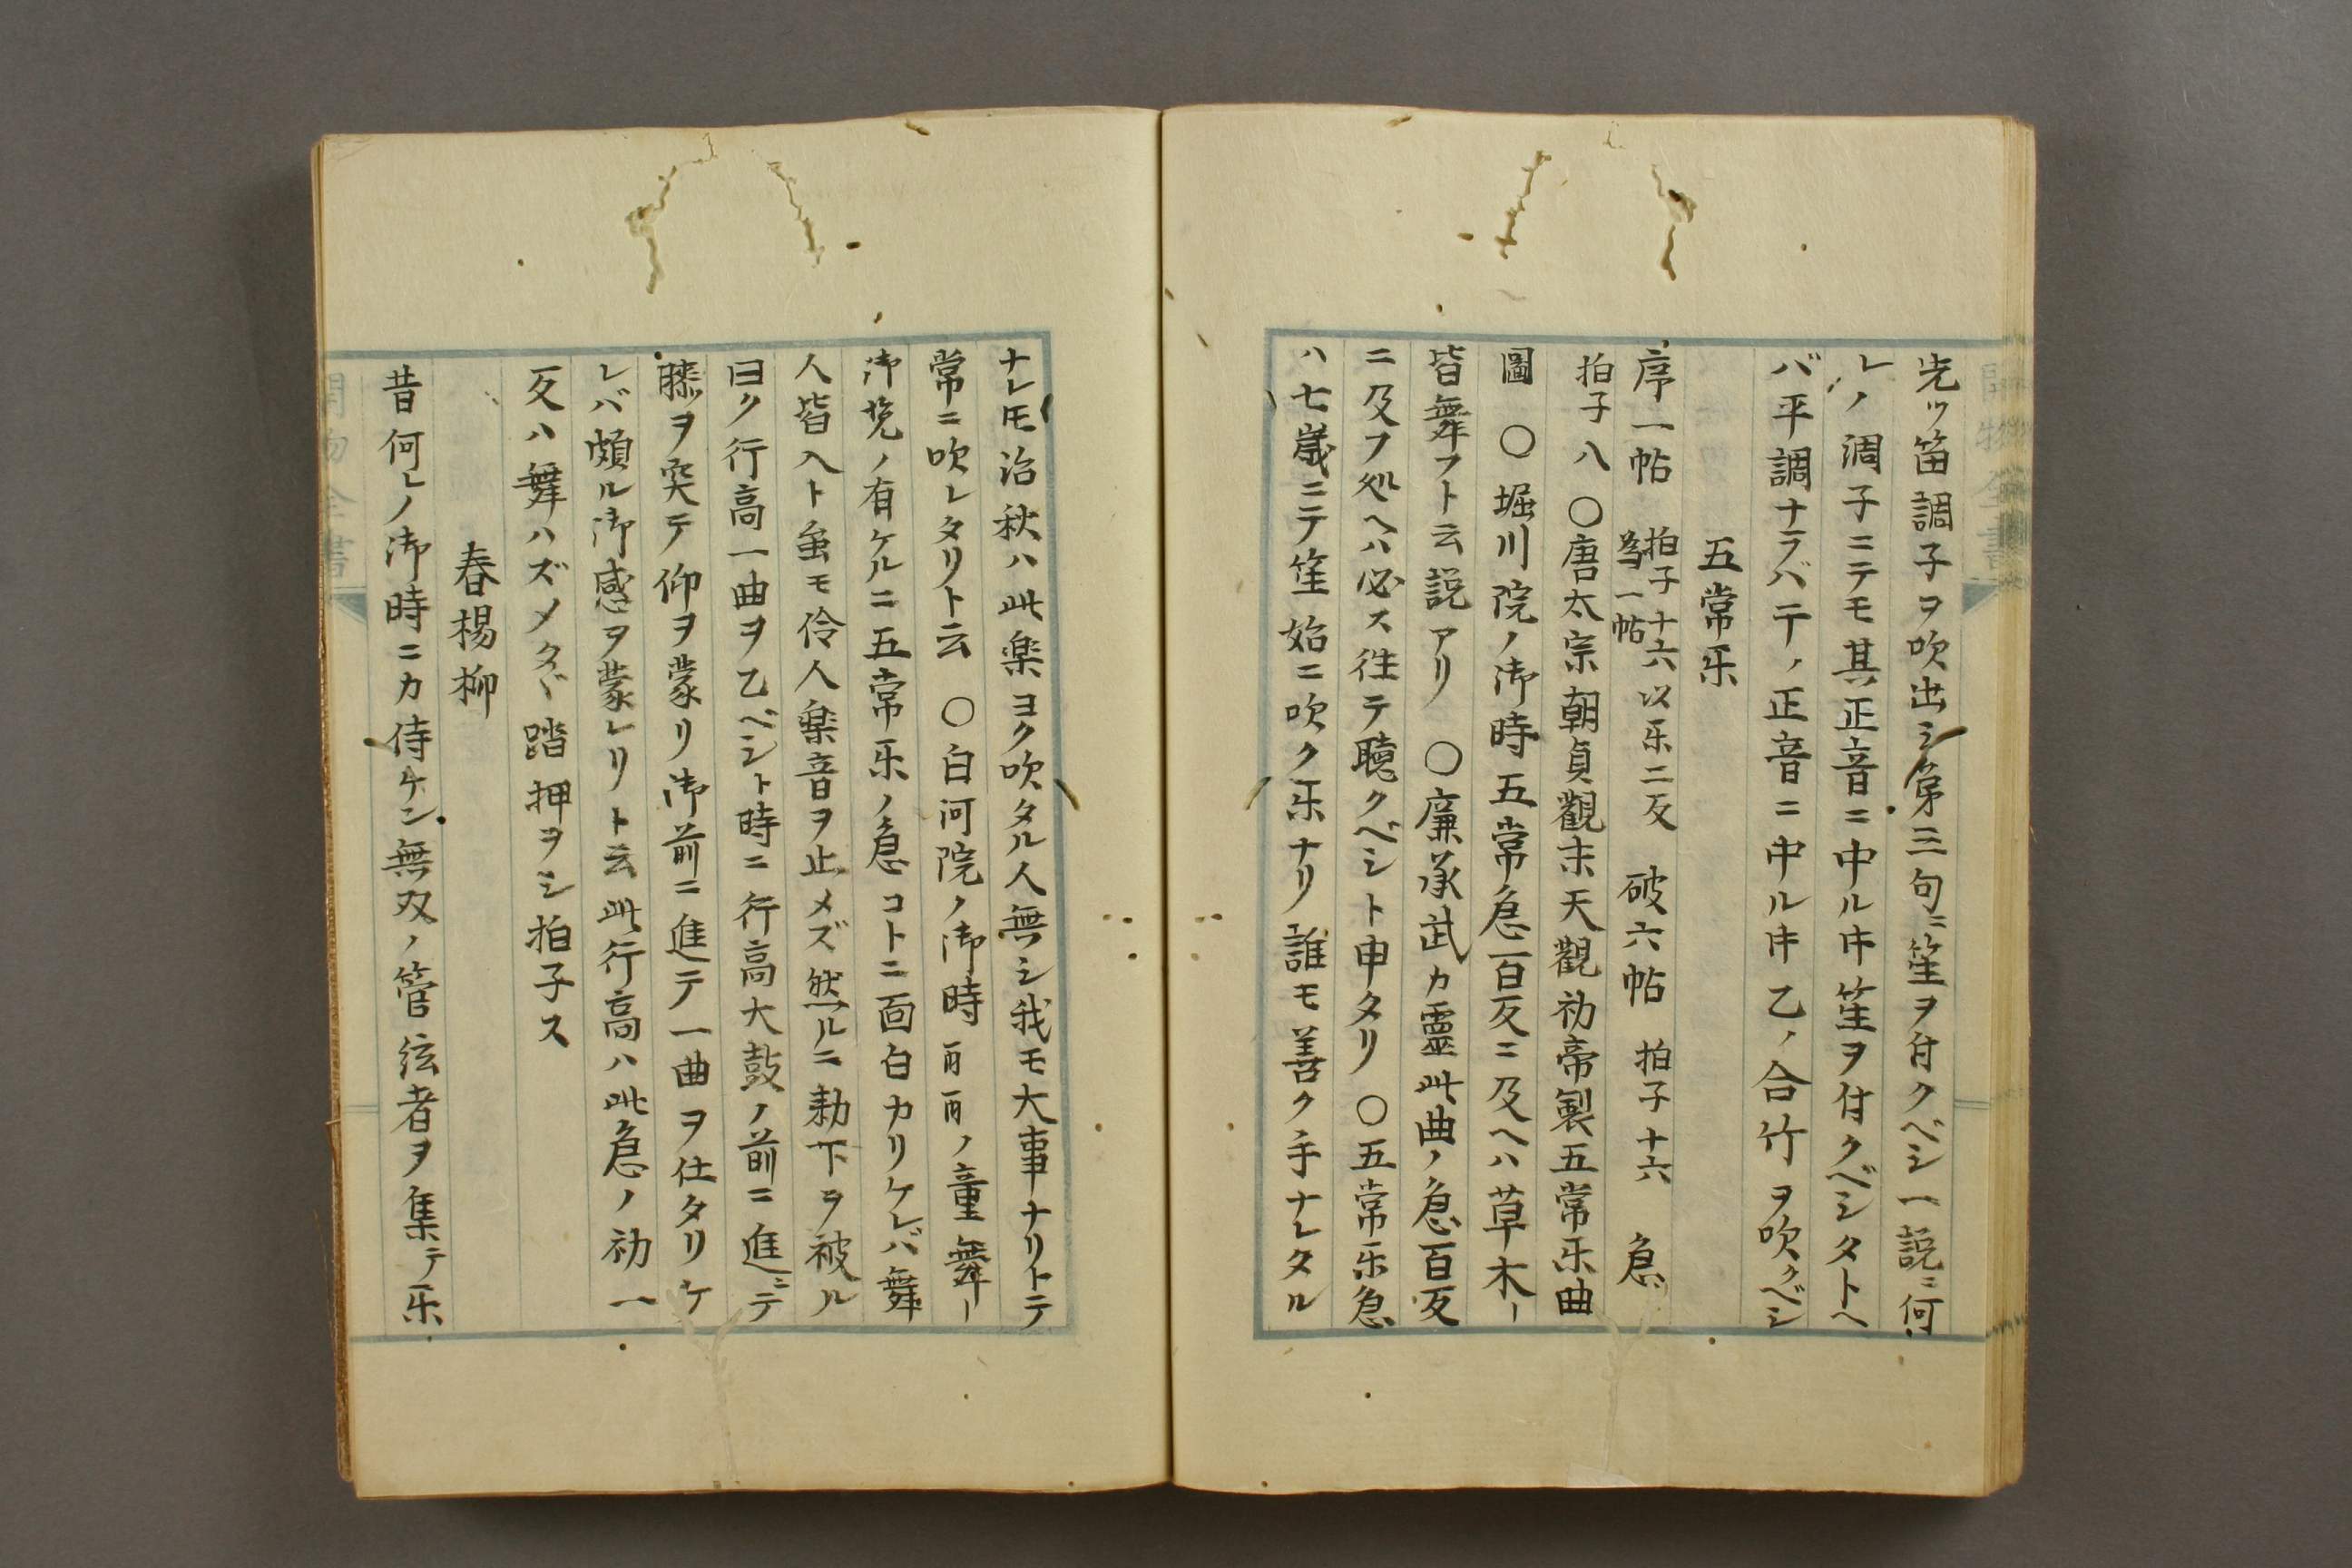 先ッ笛調子ヲ吹出シ第三句ニ笙ヲ付クベシ一説ニ何
レノ調子ニテモ其正音ニ中ル牛笙ヲ付クベシタトヘ
バ平調ナラバ〒ノ正音ニ中ル牛乙ノ合竹ヲ吹クベシ
五常乐
序一帖 拍子十六以乐二反 為一帖 破六帖 拍子十六 急
拍子八 〇唐太宗朝貞觀末天觀初帝製五常乐曲
圖 〇堀川院ノ御時五常急百反ニ及ヘハ草木ー
皆舞フト云説アリ 〇廉承武カ靈此曲ノ急百反
ニ及フ処ヘハ必ス往テ聴クベシト申タリ 〇五常乐急
ハ七歳ニテ笙始ニ吹ク乐ナリ誰モ善ク手ナレタル
ナレ𪜈治秋ハ此楽ヨク吹タル人無シ我モ大事ナリトテ
常ニ吹レタリト云 〇白河院ノ御時両両ノ童舞ー
御覧ノ有ケルニ五常乐ノ急コトニ面白カリケレバ舞
人皆入ト虽モ伶人楽音ヲ止メズ然ルニ勅下ヲ被ル
曰ク行高一曲ヲ乙ベシト時ニ行高大鼓ノ前ニ進ミテ
膝ヲ突テ仰ヲ蒙リ御前ニ進テ一曲ヲ仕タリケ
レバ頗ル御感ヲ蒙レリト云此行高ハ此急ノ初一
反ハ舞ハズメタヾ踏押ヲシ拍子ス
春楊柳
昔何レノ御時ニカ侍ケン無双ノ管弦者ヲ集テ乐